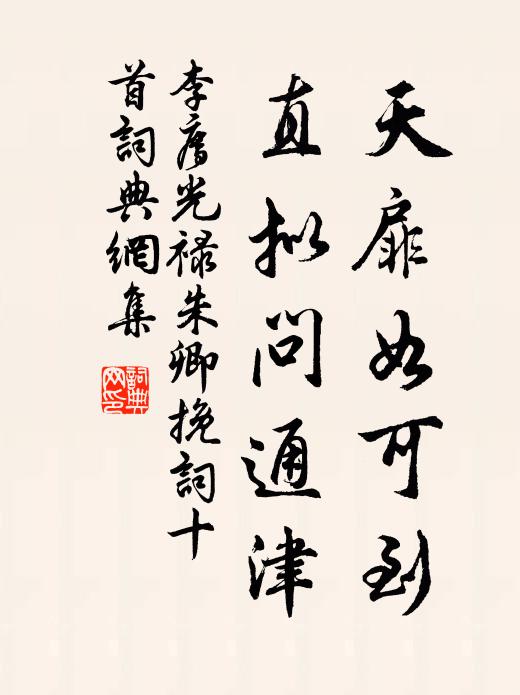 天扉如可到
直拟问通津
李廌光禄朱卿挽詞十
首詞典網集
詞典
网印